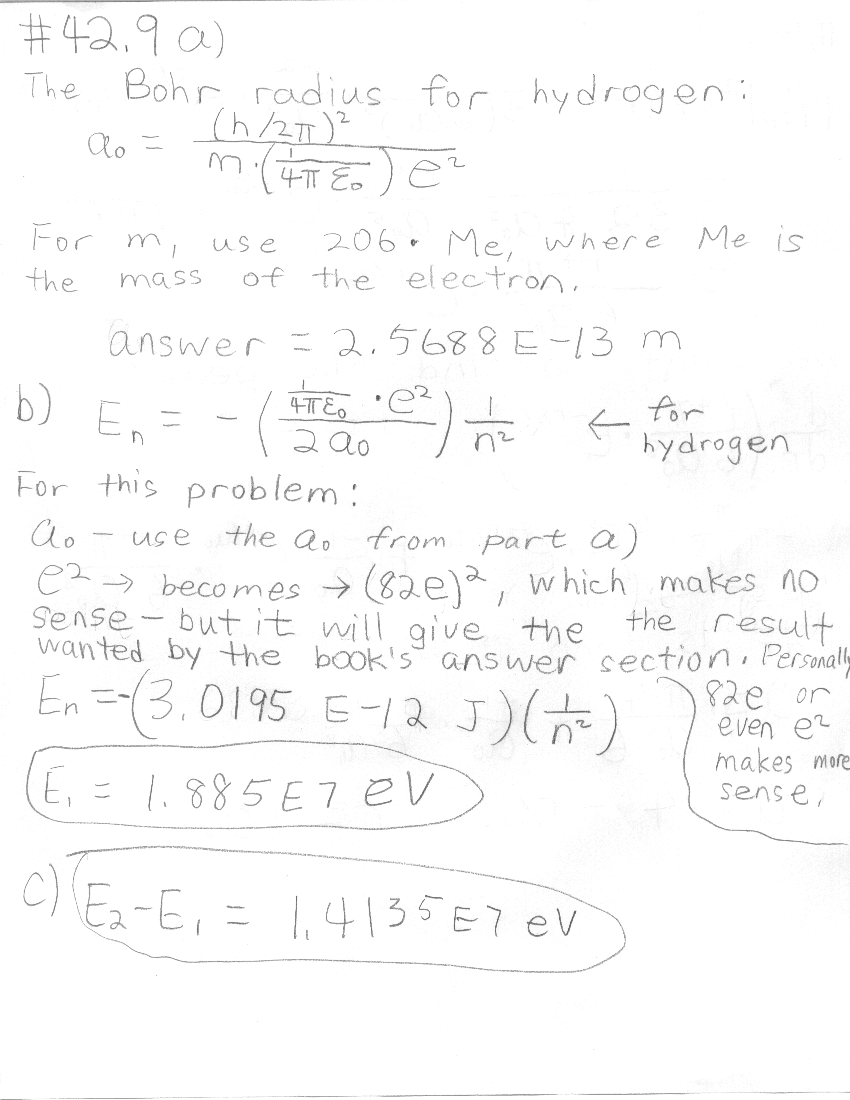 #42.9 a)
The Bohr radius for hydrogen:
a₀ = (h/2π)² / m·(1/4πε₀)e²
For m, use 206 · Me, where Me is
the mass of the electron.
answer = 2.5688E-13 m
b) Eₙ = -(1/4πε₀ · e² / 2a₀) 1/n² ← for hydrogen
For this problem:
a₀ - use the a₀ from part a)
e² → becomes → (82e)², which makes no
sense - but it will give the the result
wanted by the book's answer section. Personally
82e or
even e²
makes more
sense.
Eₙ = -(3.0195 E-12 J)(1/n²)
E₁ = 1.885E7 eV
c) E₂-E₁ = 1.4135E7 eV